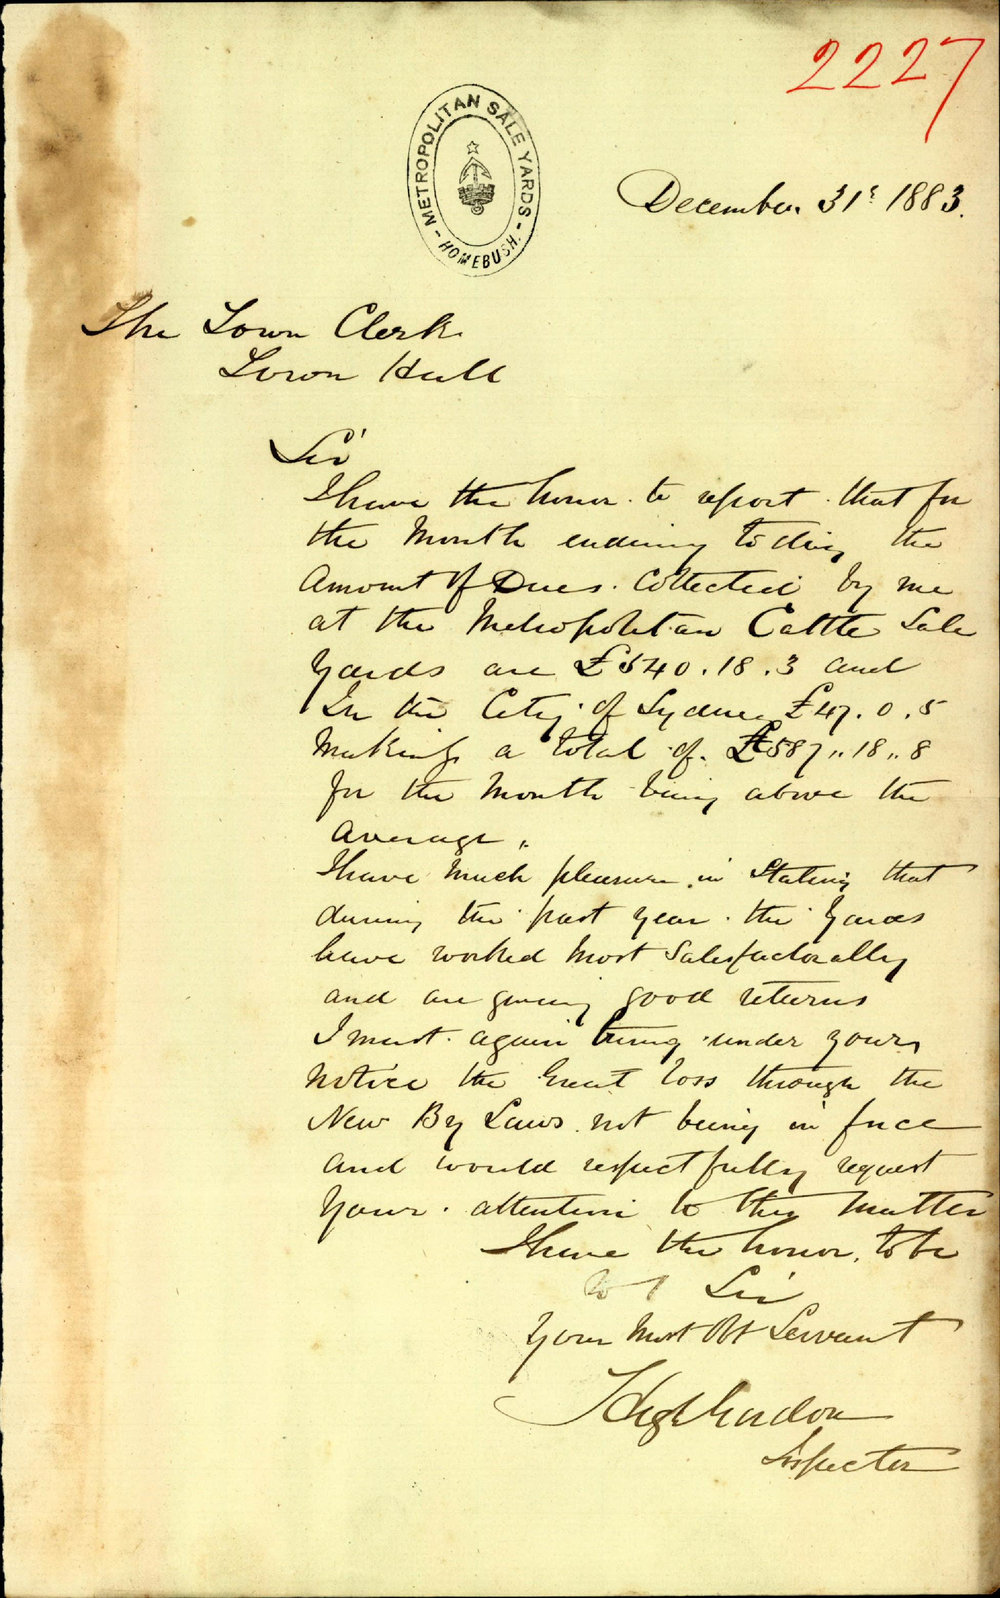 2227
METROPOLITAN SALE YARDS
- HOMEBUSH. -
December 31st 1883.
The Town Clerk
Town Hall
Sir
I have the honor to report that for
the Month ending to day the
Amount of Dues Collected by me
at the Metropolitan Cattle Sale
Yards are £540.18.3 and
In the City of Sydney £47.0.5
Making a total of £587,,18,,8
for the Month being above the
average,,
I have Much pleasure in Stating that
during the past year the Yards
have worked Most Satisfactorally
and are giving good returns
I must again bring under your
Notice the Great loss through the
New By Laws not being in force
and would respectfully request
Your attention to this Matter
I have the honor to be
Sir
Your Most Obt Servant
Inspector